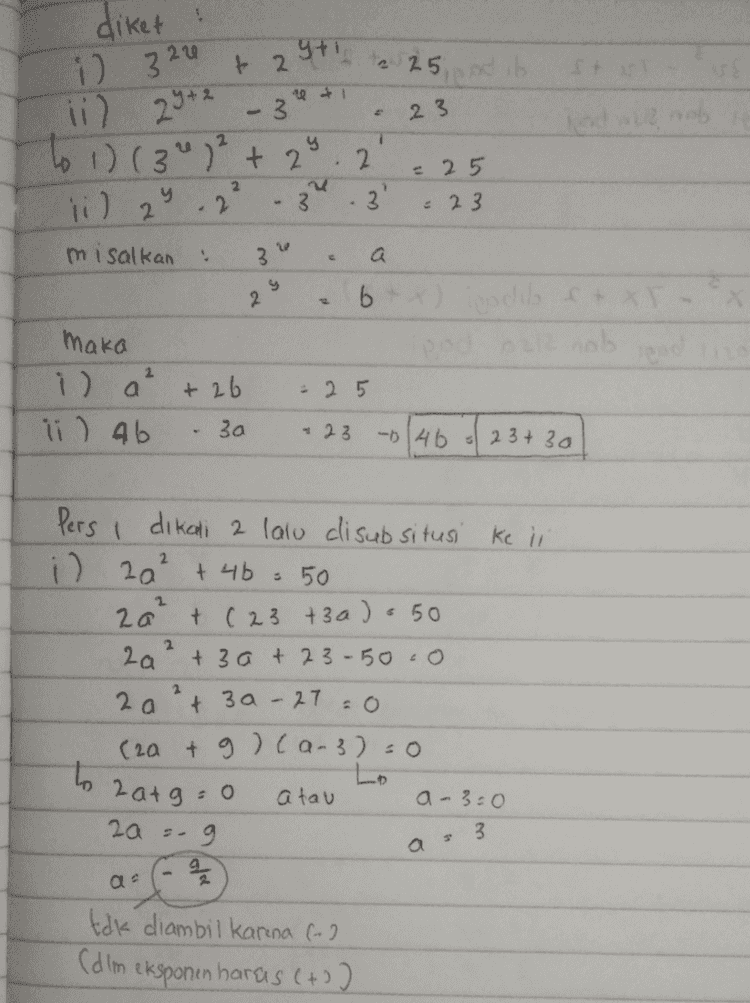 diket :
i) 3^{2x} + 2^{y+1} = 25
ii) 2^{y+2} - 3^{x+1} = 23
↳ i) (3^x)^2 + 2^y . 2^1 = 25
ii) 2^y . 2^2 - 3^x . 3^1 = 23
misalkan : 3^x = a
2^y = b
maka
i) a^2 + 2b = 25
ii) 4b - 3a = 23 → 4b = 23 + 3a
Pers 1 dikali 2 lalu disubsitusi ke ii
i) 2a^2 + 4b = 50
2a^2 + (23 + 3a) = 50
2a^2 + 3a + 23 - 50 = 0
2a^2 + 3a - 27 = 0
(2a + 9)(a - 3) = 0
↳ 2a + 9 = 0 atau ↳ a - 3 = 0
2a = -9 a = 3
a = -9/2
tdk diambil karena (-)
(dlm eksponen harus (+))